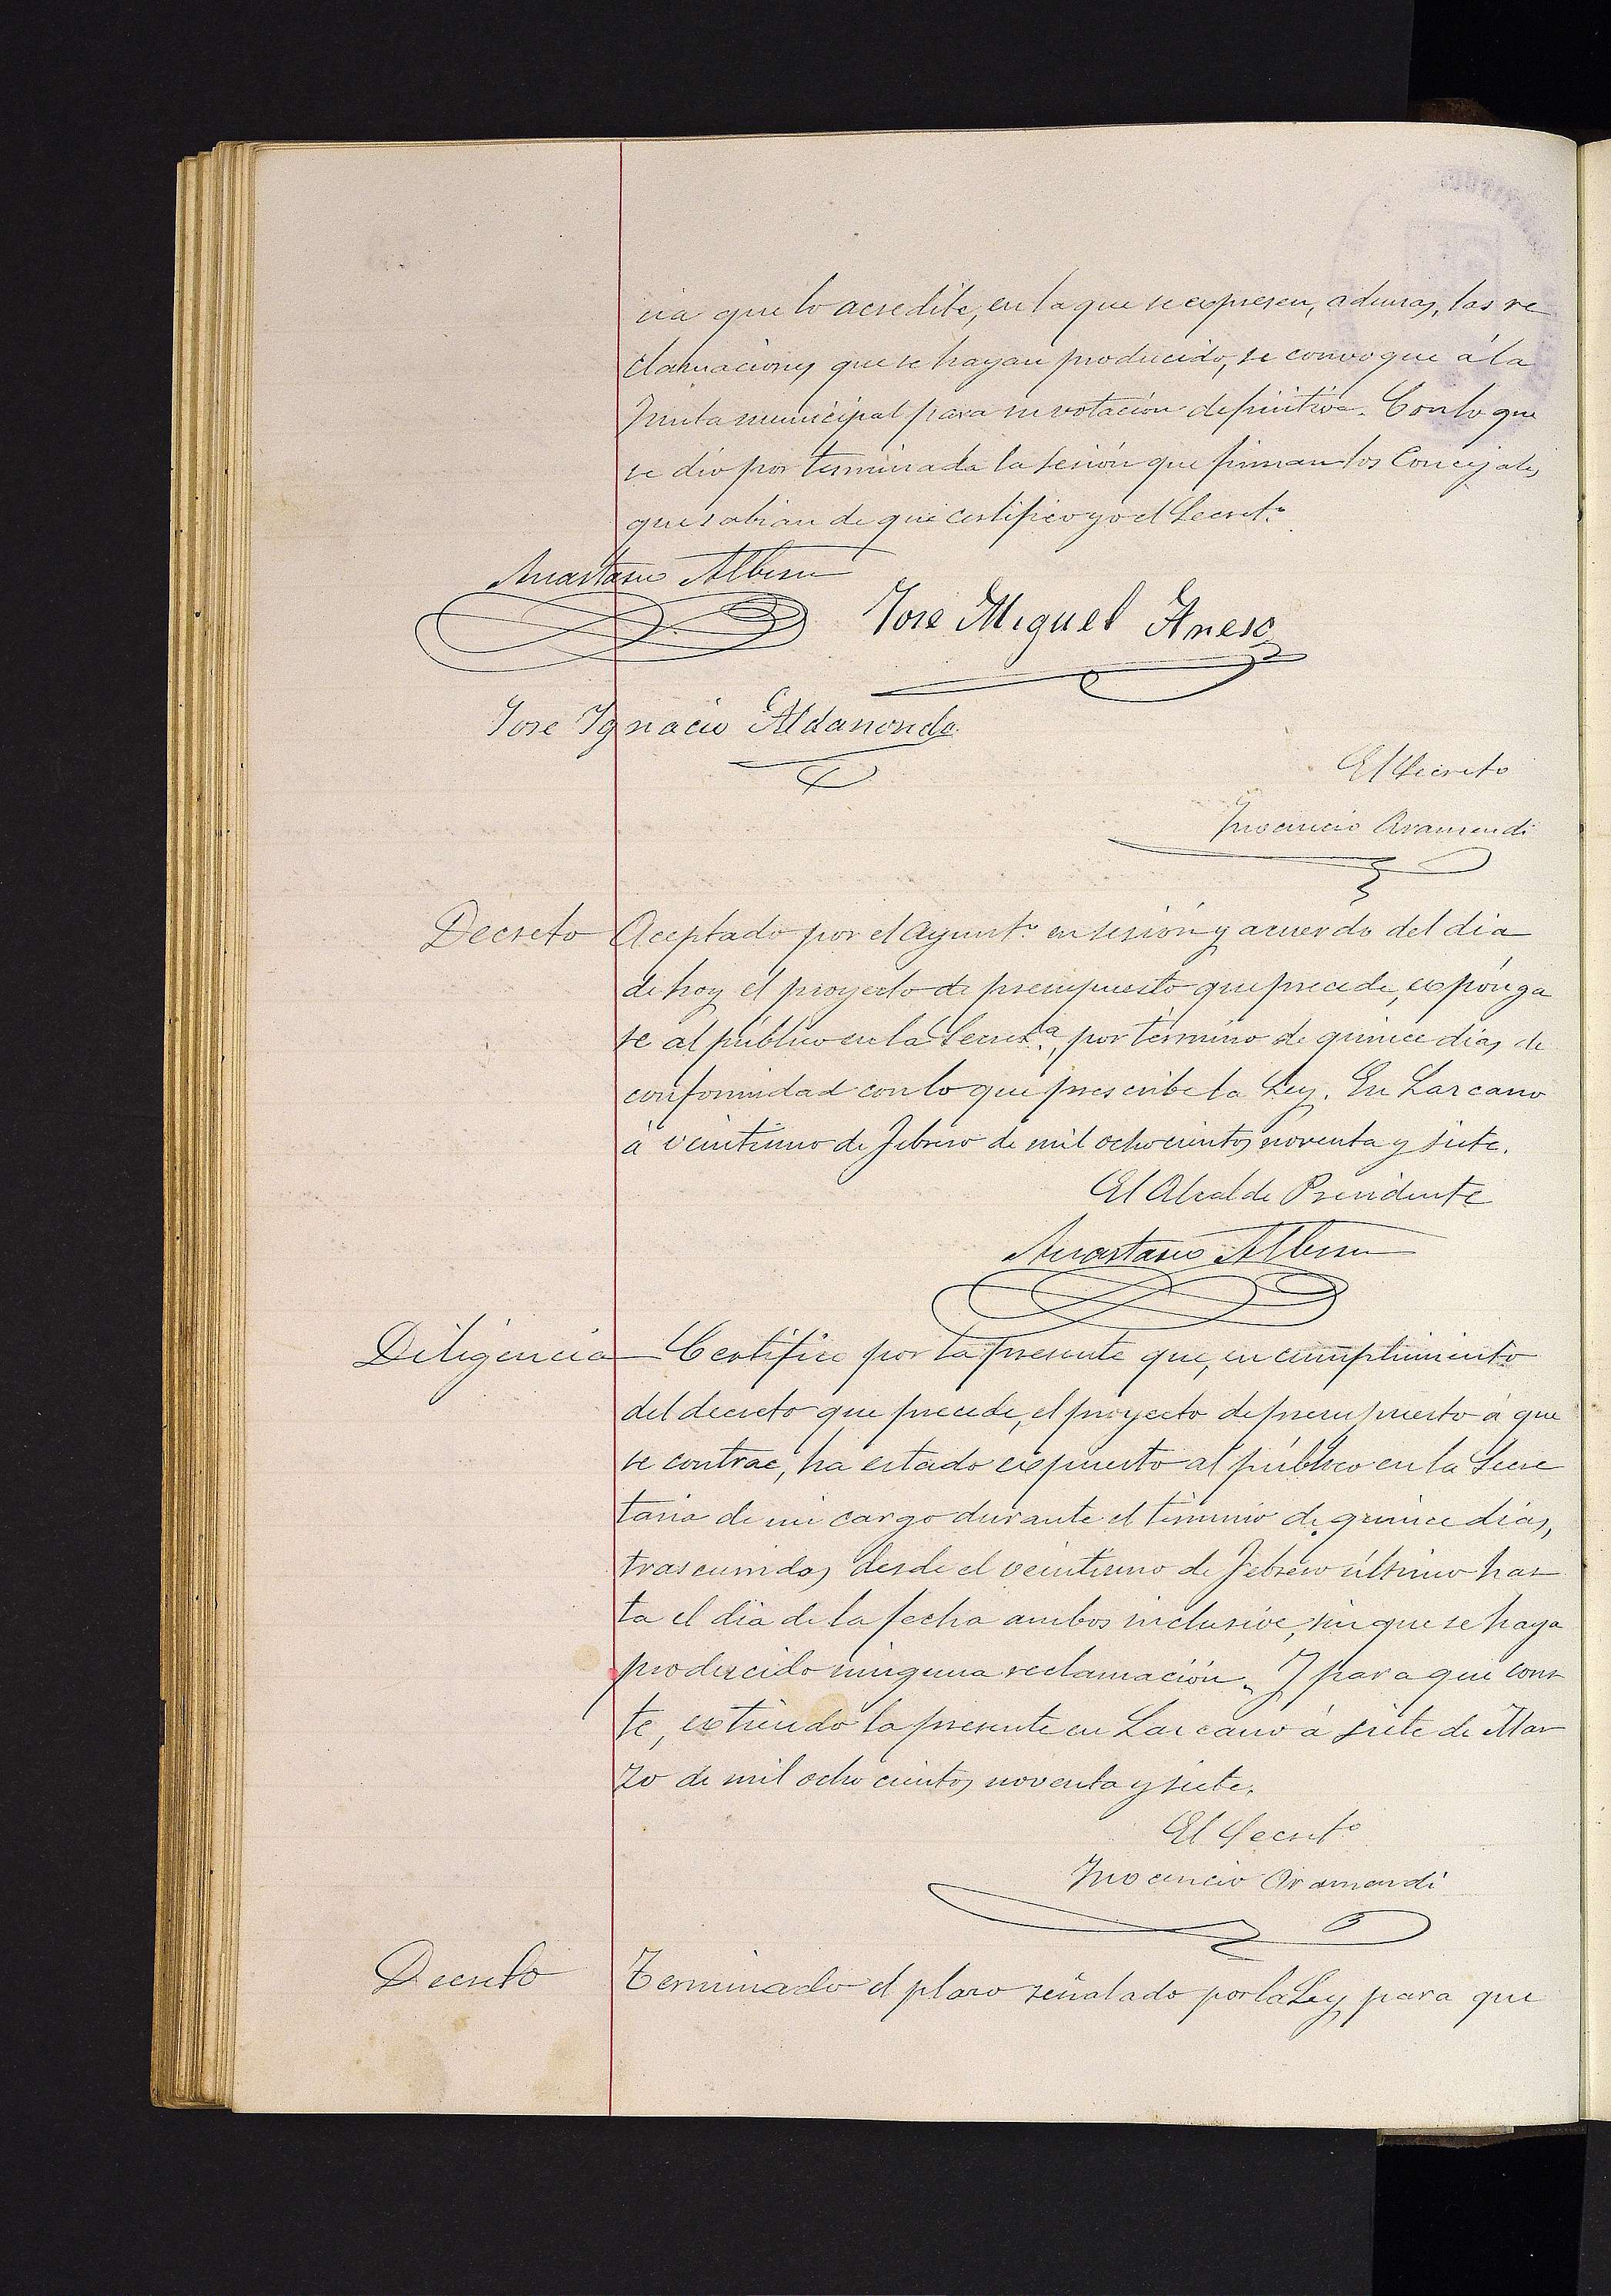 cia que lo acredite, en la que se expresen, ademas, las re
clamaciones que se hayan producido, se convoque á la
Junta municipal para su votación definitiva. Con lo que
se dió por terminada la sesión que firman los Concejales
que sabian de que certifico yo el Secret.º
Anastasio Albisu
Jose Miguel
Jose Ignacio Aldanondo
El Secreto
Inocencio Aramendi
Decreto
Aceptado por el Ayunt.º en sesión y acuerdo del dia
de hoy el proyecto de presupuesto que precede, expónga
se al público en la Secret.ª, por término de quince dias, de
conformidad con lo que prescribe la Ley. En Lazcano
á veintiuno de Febrero de mil ochocientos noventa y siete.
El Alcalde Presidente
Anastasio Albisu
Diligencia
Certifico por la presente que, en cumplimiento
del decreto que precede, el proyecto de presupuesto á que
se contrae, ha estado expuesto al público en la Secre
taria de mi cargo durante el término de quince dias,
trascurridos desde el veintiuno de Febrero último has
ta el dia de la fecha ambos inclusive, sin que se haya
producido ninguna reclamación. Y para que cons
te, extiendo la presente en Lazcano á siete de Mar
zo de mil ochocientos noventa y siete.
El Secret.º
Inocencio Aramendi
Decreto
Terminado el plazo señalado por la Ley para que